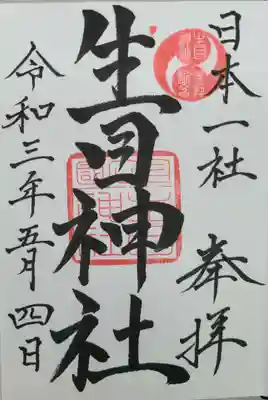 日本一社 奉拝
生目神社
令和三年五月四日